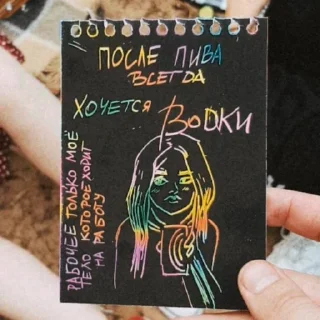 ПОСЛЕ ПИВА
ВСЕГДА
ХОЧЕТСЯ ВОДКИ
РАБОЧЕЕ ТОЛЬКО МОЁ
ТЕЛО КОТОРОЕ ХОДИТ
НА РАБОТУ